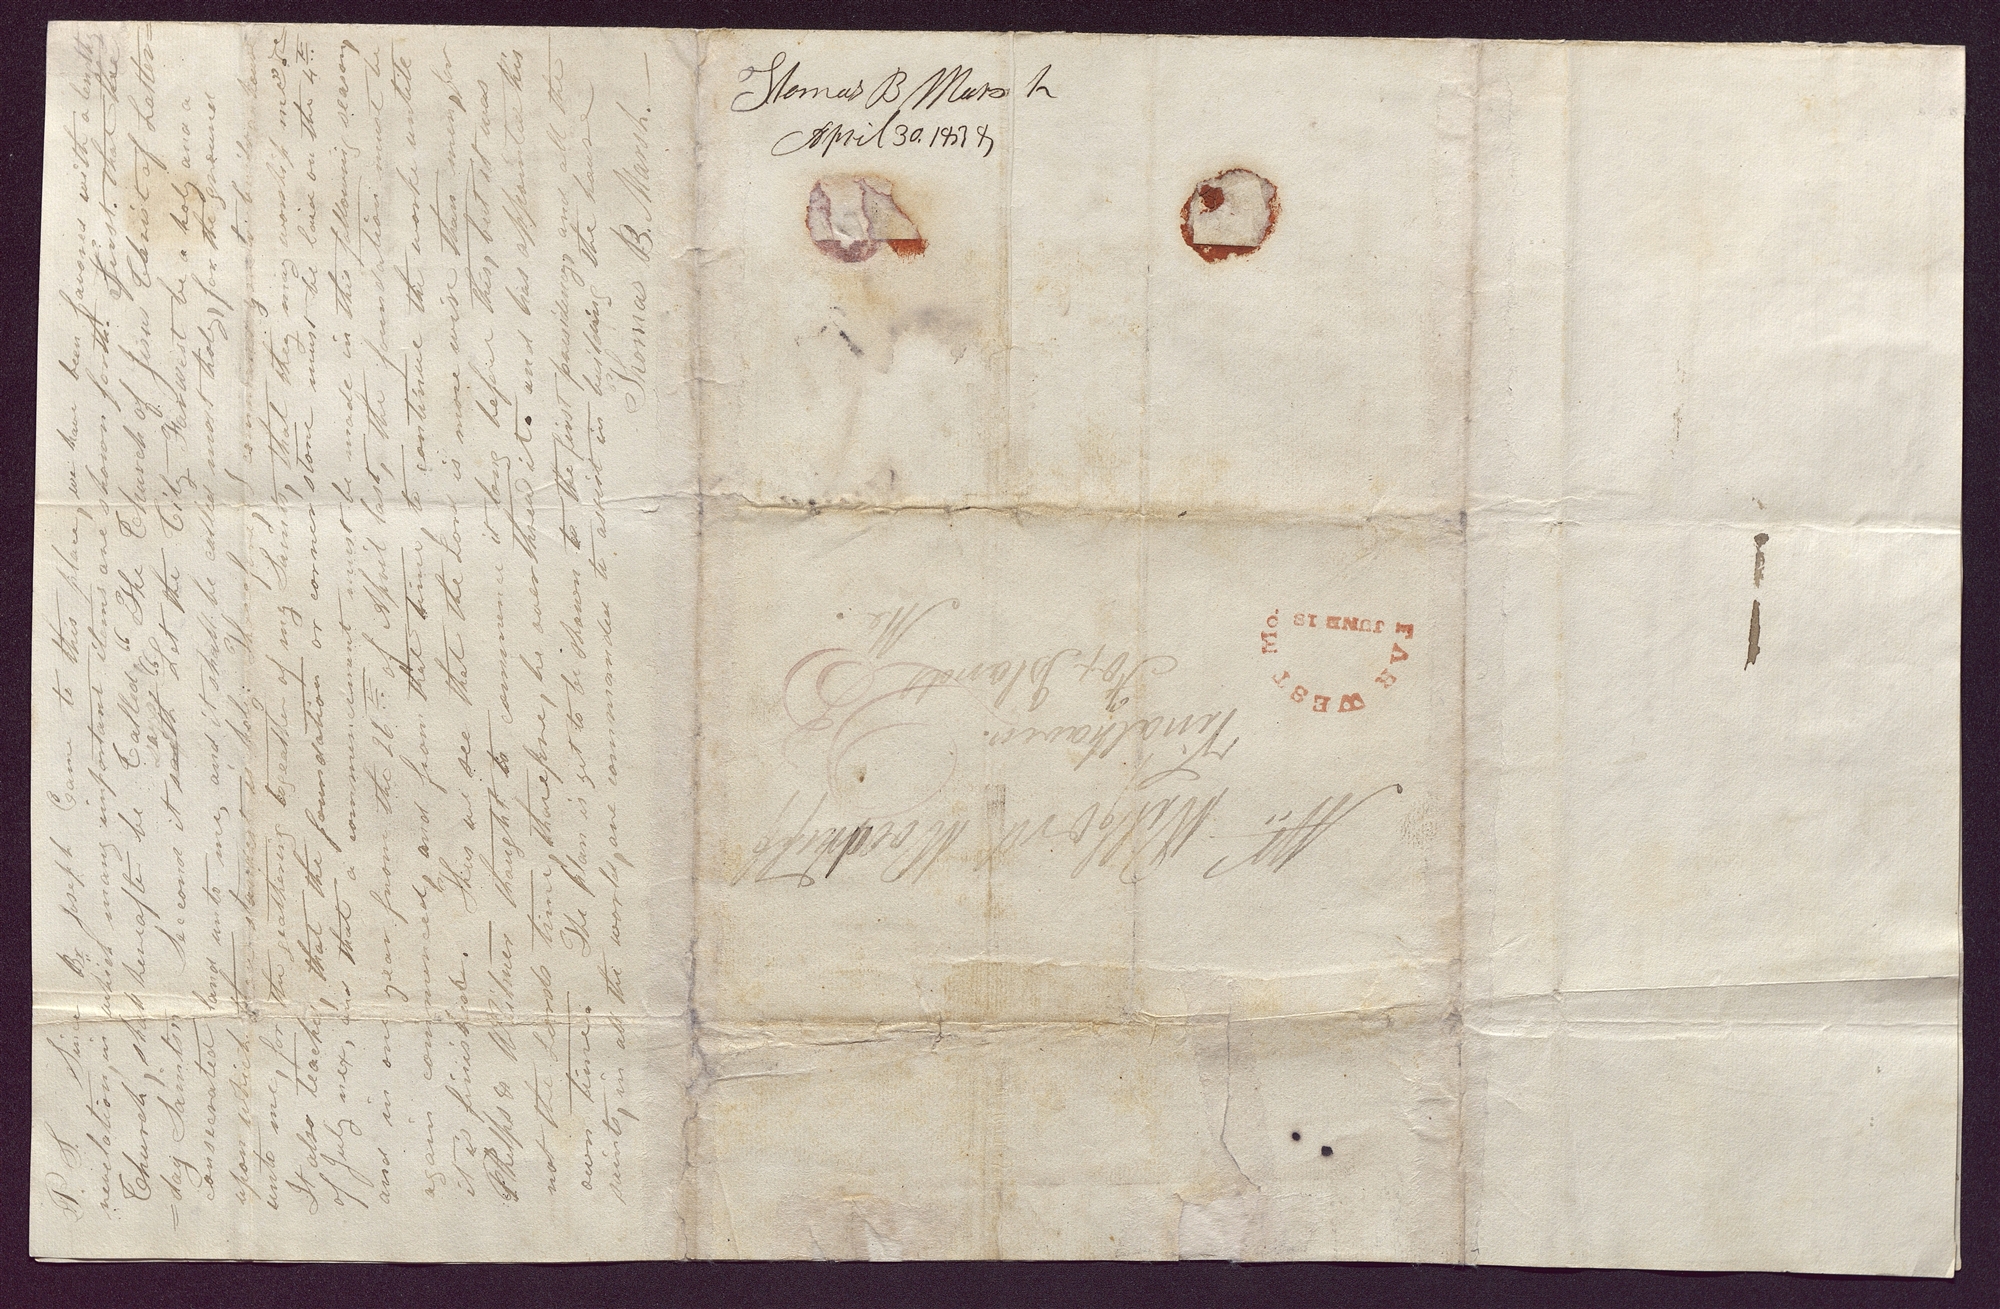 P. S. Since Br Joseph Came to this place, we have been favored with a lenthy
revelation, in which many important items are shown forth. First, that the
Church, shall hereafter be Called "The Church of Jesus Christ of Latter=
=day Saints." Second it saith Let the City Farwest be a holy and a
consecrated land unto me, and it shall be called most holy, for the ground
upon which thou standest is holy: Therefore, I command you to build an house
unto me, for the geathering togeather of my Saints, that they may worship me. 3rd
It also teaches, that the foundation or corner stone must be laid on the 4th
of July next, and that a commencement must be made in this following season;
and in one year from the 26th of April last, the foundation must be
again commenced, and from that time, to continue the worke untile
it is finished. Thus we see that the Lord is more wise than men, for
Phelps & Whitmer thought to commence it long before this, but it was
not the Lords time, therefore, he overthrew it. and has appointed his
own time. The plan is yet to be shown to the first presidency, and all the
saints, in all the world, are commanded to assist in building the house
Thomas B. Marsh.
Thomas B Marsh
April 30. 1838
FAR WEST Mo.
JUNE 18
25
Mr. Willford Woodruff
Vinalhaven.
Fox Islands
Me.